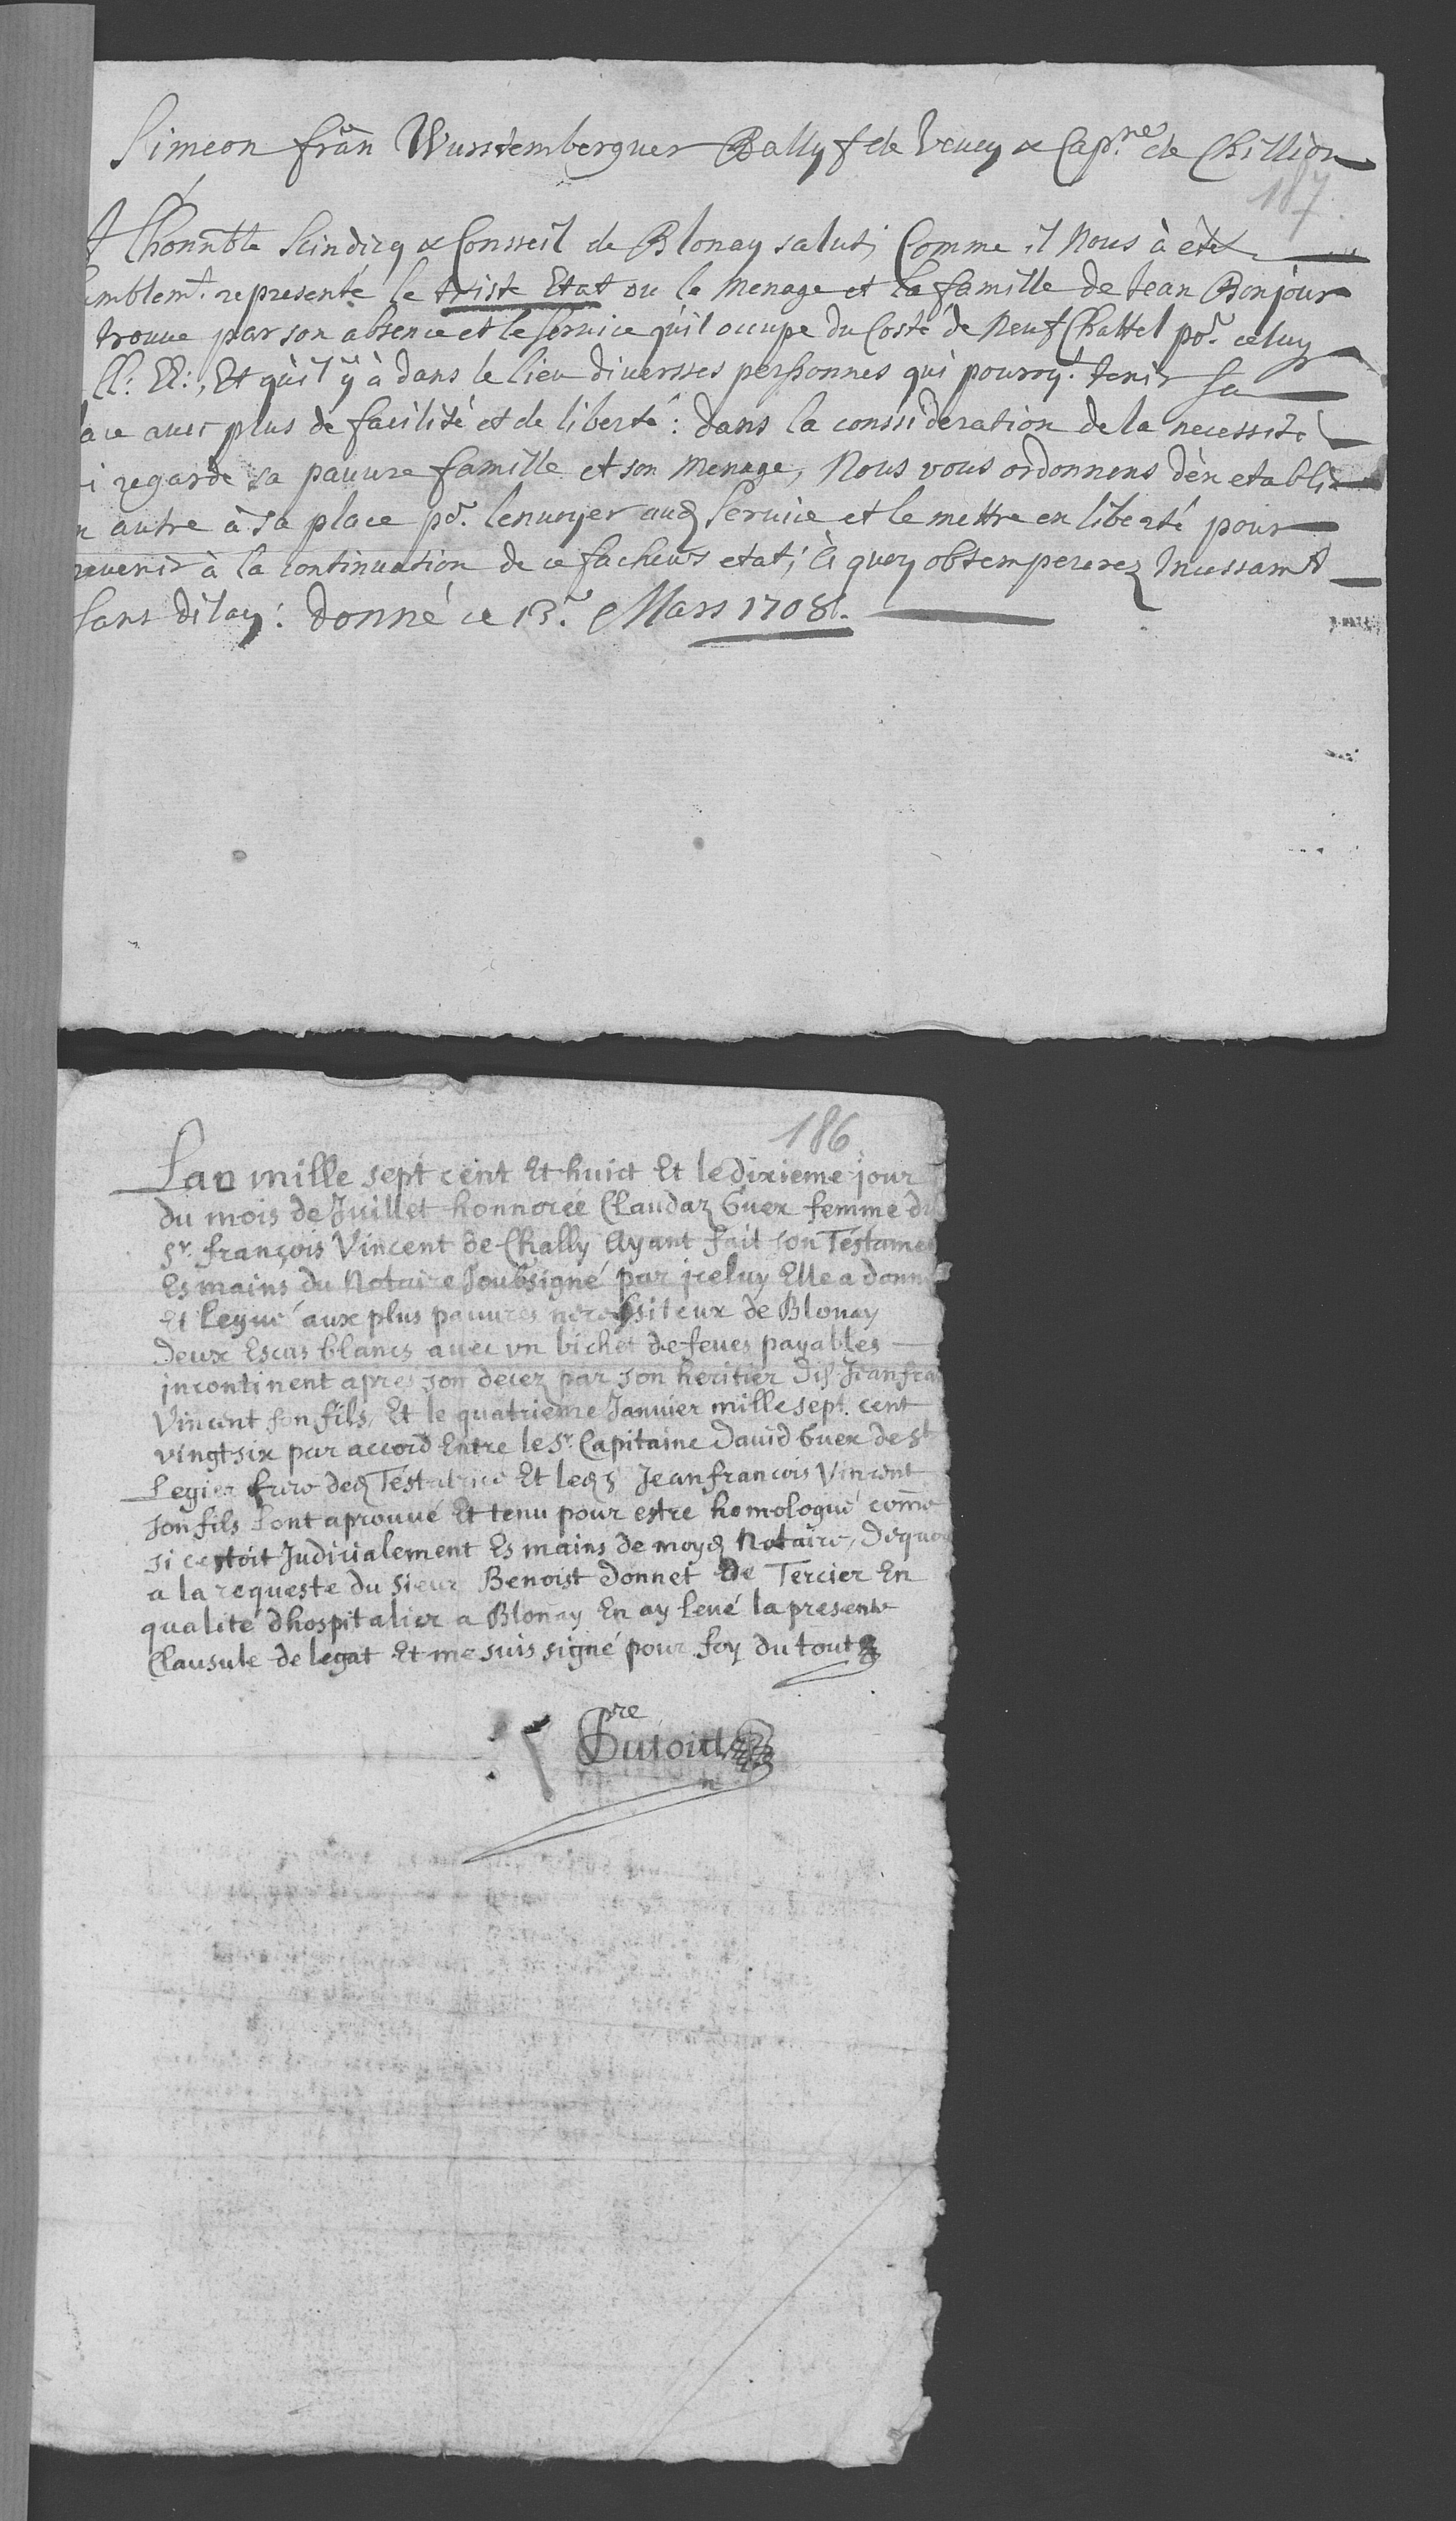 Simeon frãn Wurstemberguer Ballyf de Vevey & Cap.ne de Chillion
187.
A lhonn̄ble Scindicq & Consseil de Blonay salut; Comme il Nous à èté
emblem.t representé le triste Etat ou le Menage et la famille de Jean Bonjour
trouve par son absence et le Service qu'il occupe du Costé de Neuf Chattel po.r celuy
Ll: EE:, Et qu'il y à dans le lieu diversses perssonnes qui pourroy.t tenir sa
ace avec plus de facilité et de liberté: dans la conssideration de la necessité
i regarde sa pauvre famille et son Menage, Nous vous ordonnons dèn etablir
n autre à sa place po.r lenvoyer aud Service et le mettre en liberté pour
revenir à la continuation de ce facheux etat; à quoy obtempererez Incessamt
sans dilay: donné ce 13.e Mars 1708.
186
Lan mille sept cent Et huict Et le dixieme jour
du mois de Juillet honnoreé Claudaz Guex femme du
Sr. françois Vincent de Chally Ayant fait son Testame
Es mains du Notaire Soubsigné par jceluy Elle a donn
Et Legué aux plus pauvres necessiteux de Blonay
deux Escus blancs avec vn bichet de feves payables
jncontinent apres son decez par son heritier dis Jeanfra
Vincent son fils, Et le quatrieme Janvier mille sept cent
vingtsix par accord Entre le Sr. Capitaine David Guex de St
Legier frere ded Testatrice Et led Jeanfrancois Vincent
son fils Lont aprouvé Et tenu pour estre homologué comme
si cestoit Judicialement Es mains de moyd Notaire, Dequoy
a la requeste du Sieur Benoist Donnet de Tercier En
qualité dhospitalier a Blonay En ay levé la presente
Clausule de legat Et me suis signé pour foy du tout
Dutoit